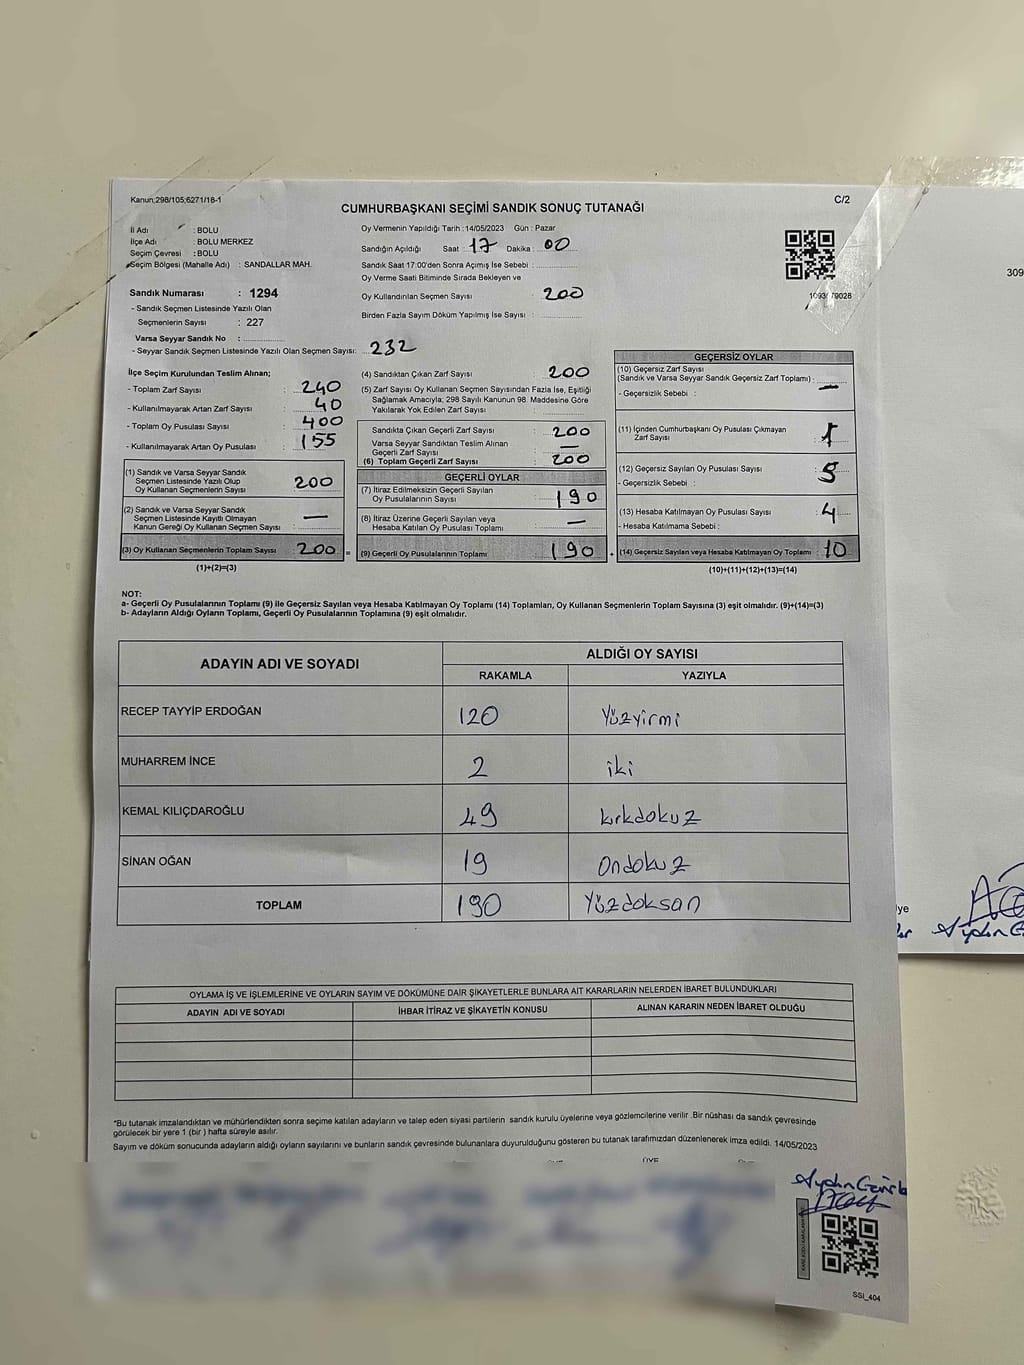 Kanun;298/105;6271/18-1
C/2
CUMHURBAŞKANI SEÇİMİ SANDIK SONUÇ TUTANAĞI
İl Adı : BOLU
İlçe Adı : BOLU MERKEZ
Seçim Çevresi : BOLU
Seçim Bölgesi (Mahalle Adı) : SANDALLAR MAH.
Sandık Numarası : 1294
- Sandık Seçmen Listesinde Yazılı Olan
Seçmenlerin Sayısı : 227
Varsa Seyyar Sandık No :
- Seyyar Sandık Seçmen Listesinde Yazılı Olan Seçmen Sayısı: 232
Oy Vermenin Yapıldığı Tarih :14/05/2023 Gün : Pazar
Sandığın Açıldığı Saat : 17 Dakika : 00
Sandık Saat 17:00'den Sonra Açımış İse Sebebi :
Oy Verme Saati Bitiminde Sırada Bekleyen ve
Oy Kullandırılan Seçmen Sayısı : 200
Birden Fazla Sayım Döküm Yapılmış İse Sayısı :
309
İlçe Seçim Kurulundan Teslim Alınan;
- Toplam Zarf Sayısı : 240
- Kullanılmayarak Artan Zarf Sayısı : 40
- Toplam Oy Pusulası Sayısı : 400
- Kullanılmayarak Artan Oy Pusulası : 155
(1) Sandık ve Varsa Seyyar Sandık
Seçmen Listesinde Yazılı Olup
Oy Kullanan Seçmenlerin Sayısı 200
(2) Sandık ve Varsa Seyyar Sandık
Seçmen Listesinde Kayıtlı Olmayan
Kanun Gereği Oy Kullanan Seçmen Sayısı : —
(3) Oy Kullanan Seçmenlerin Toplam Sayısı 200 =
(1)+(2)=(3)
(4) Sandıktan Çıkan Zarf Sayısı : 200
(5) Zarf Sayısı Oy Kullanan Seçmen Sayısından Fazla İse, Eşitliği
Sağlamak Amacıyla; 298 Sayılı Kanunun 98. Maddesine Göre
Yakılarak Yok Edilen Zarf Sayısı :
Sandıkta Çıkan Geçerli Zarf Sayısı : 200
Varsa Seyyar Sandıktan Teslim Alınan
Geçerli Zarf Sayısı : —
(6) Toplam Geçerli Zarf Sayısı : 200
GEÇERLİ OYLAR
(7) İtiraz Edilmeksizin Geçerli Sayılan
Oy Pusulalarının Sayısı : 190
(8) İtiraz Üzerine Geçerli Sayılan veya
Hesaba Katılan Oy Pusulası Toplamı : —
(9) Geçerli Oy Pusulalarının Toplamı 190 +
GEÇERSİZ OYLAR
(10) Geçersiz Zarf Sayısı
(Sandık ve Varsa Seyyar Sandık Geçersiz Zarf Toplamı) : —
- Geçersizlik Sebebi :
(11) İçinden Cumhurbaşkanı Oy Pusulası Çıkmayan
Zarf Sayısı : 1
(12) Geçersiz Sayılan Oy Pusulası Sayısı : 5
- Geçersizlik Sebebi :
(13) Hesaba Katılmayan Oy Pusulası Sayısı : 4
- Hesaba Katılmama Sebebi :
(14) Geçersiz Sayılan veya Hesaba Katılmayan Oy Toplamı : 10
(10)+(11)+(12)+(13)=(14)
NOT:
a- Geçerli Oy Pusulalarının Toplamı (9) ile Geçersiz Sayılan veya Hesaba Katılmayan Oy Toplamı (14) Toplamları, Oy Kullanan Seçmenlerin Toplam Sayısına (3) eşit olmalıdır. (9)+(14)=(3)
b- Adayların Aldığı Oyların Toplamı, Geçerli Oy Pusulalarının Toplamına (9) eşit olmalıdır.
ADAYIN ADI VE SOYADI ALDIĞI OY SAYISI
RAKAMLA YAZIYLA
RECEP TAYYİP ERDOĞAN 120 Yüzyirmi
MUHARREM İNCE 2 iki
KEMAL KILIÇDAROĞLU 49 kırkdokuz
SİNAN OĞAN 19 Ondokuz
TOPLAM 190 Yüzdoksan
OYLAMA İŞ VE İŞLEMLERİNE VE OYLARIN SAYIM VE DÖKÜMÜNE DAİR ŞİKAYETLERLE BUNLARA AİT KARARLARIN NELERDEN İBARET BULUNDUKLARI
ADAYIN ADI VE SOYADI İHBAR İTİRAZ VE ŞİKAYETİN KONUSU ALINAN KARARIN NEDEN İBARET OLDUĞU
*Bu tutanak imzalandıktan ve mühürlendikten sonra seçime katılan adayların ve talep eden siyasi partilerin sandık kurulu üyelerine veya gözlemcilerine verilir .Bir nüshası da sandık çevresinde
görülecek bir yere 1 (bir ) hafta süreyle asılır.
Sayım ve döküm sonucunda adayların aldığı oyların sayılarını ve bunların sandık çevresinde bulunanlara duyurulduğunu gösteren bu tutanak tarafımızdan düzenlenerek imza edildi. 14/05/2023
SSI_404